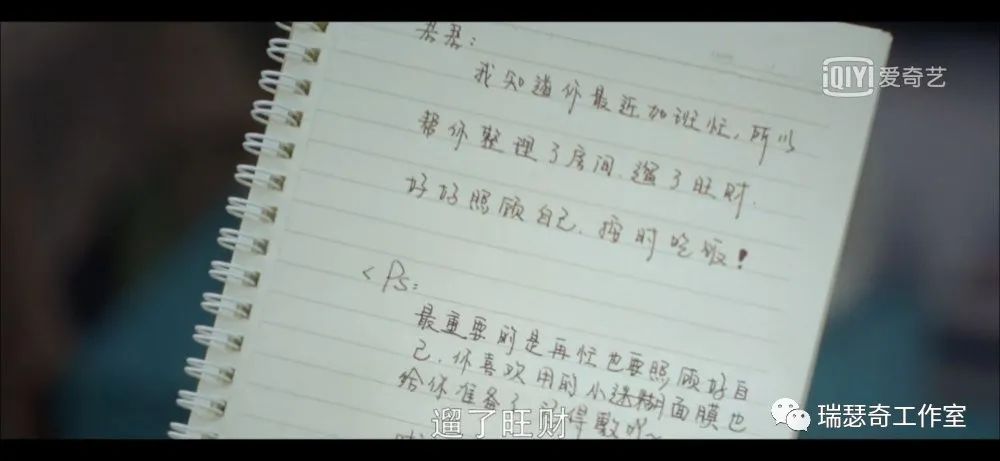 君君：
iQIYI 爱奇艺
我知道你最近加班忙，所以
帮你整理了房间，遛了旺财.
好好照顾自己，按时吃饭！
<Ps：
最重要的是再忙也要照顾好自
己，你喜欢用的小迷糊面膜也
给你准备了 记得敷哦~
遛了旺财
瑞瑟奇工作室